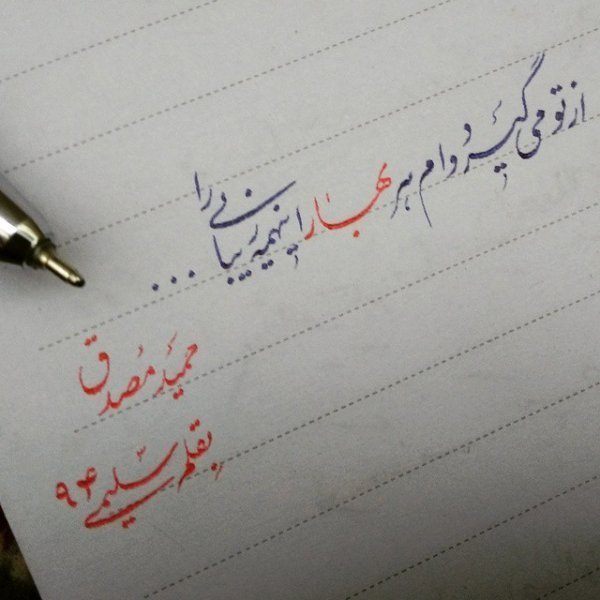 از تو می گیرد وام هر بهار اینهمه زیبایی را ...
حمید مصدق
بقلم سلیمی ۹۴